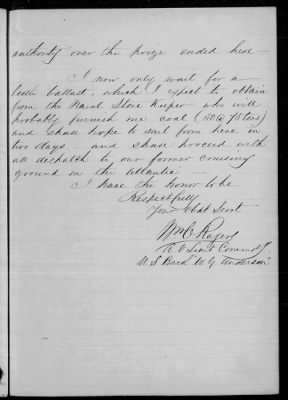 authority over the prize ended here —
I now only wait for a
little ballast, which I expect to obtain
from the Naval Store Keeper who will
probably furnish me coal (50 @ 75 tons)
and shall hope to sail from here in
two days — and shall proceed with
all despatch to our former cruising
ground in the Atlantic —
I have the honor to be
Respectfully
Your Obdt Servt
Wm C Rogers
A V Lieut Commdg
U.S. Bark W. G. Anderson